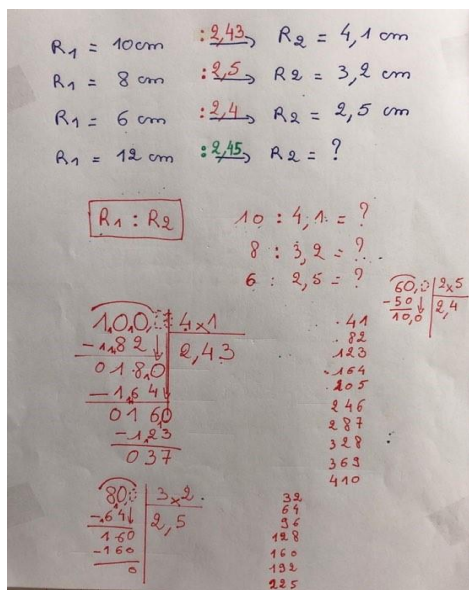 R1 = 10 cm :2,43 → R2 = 4,1 cm
R1 = 8 cm :2,5 → R2 = 3,2 cm
R1 = 6 cm :2,4 → R2 = 2,5 cm
R1 = 12 cm :2,45 → R2 = ?
R1 : R2
10 : 4,1 = ?
8 : 3,2 = ?
6 : 2,5 = ?
60,0 2x5
-50 2,4
10,0
100, 4x1
-1,82 2,43
018,0
-1,64
0160
-1,23
037
41
82
123
164
205
246
287
328
369
410
80,0 3x2
-64 2,5
160
-160
0
32
64
96
128
160
192
225